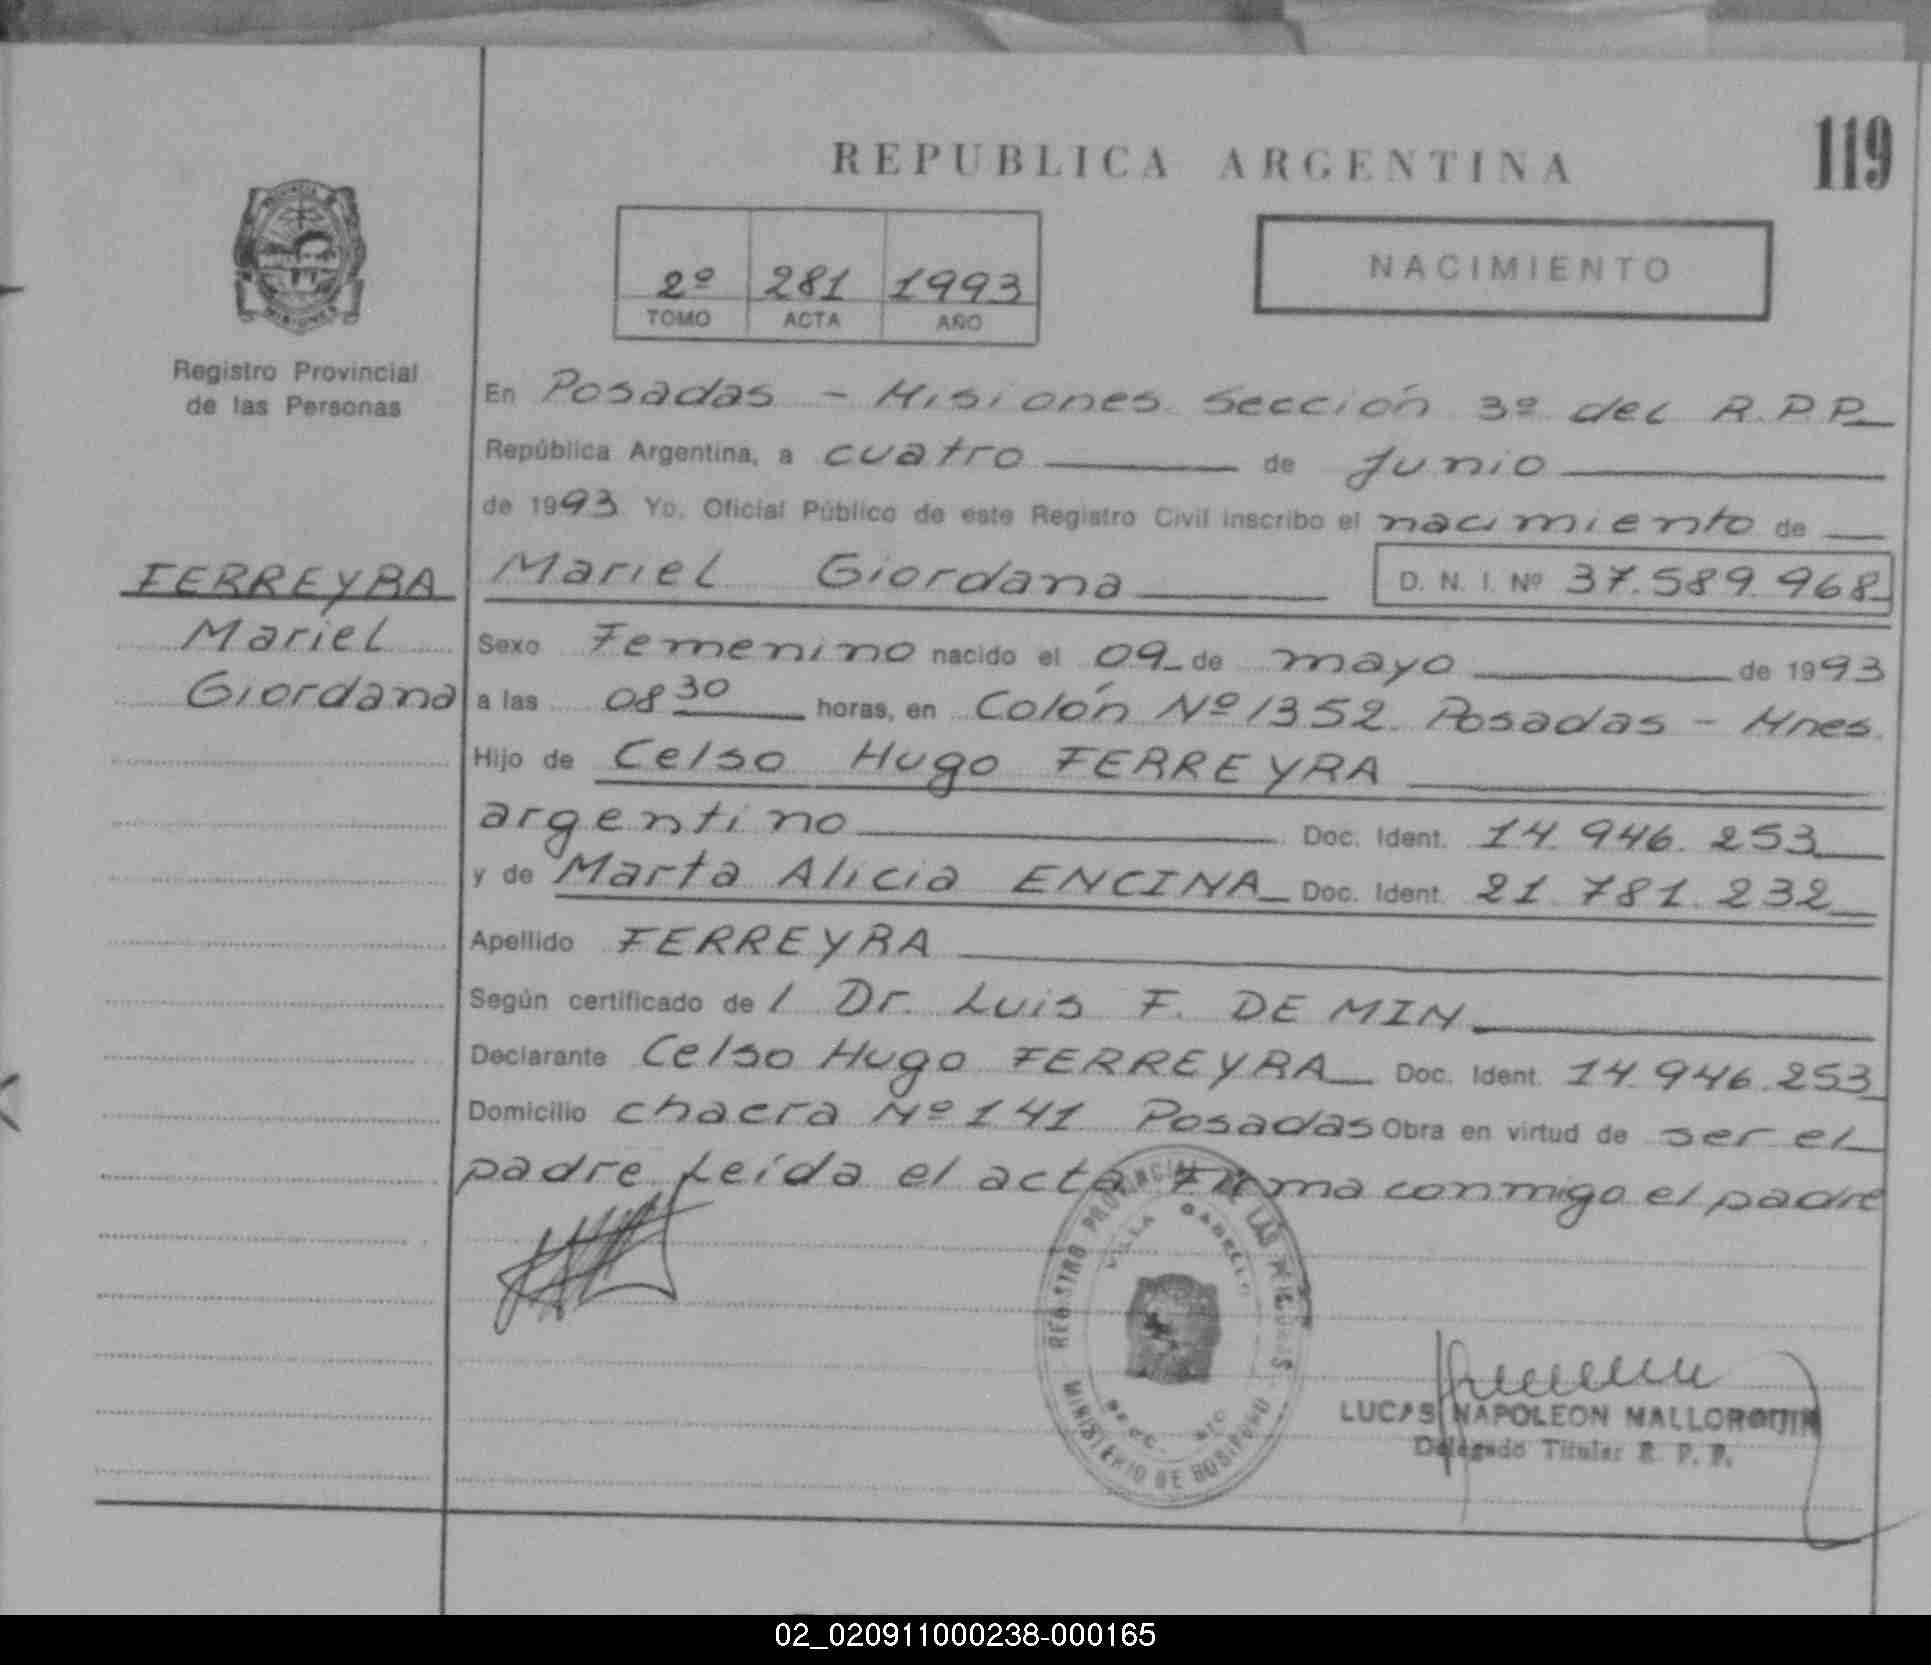 119
REPUBLICA ARGENTINA
2º 281 1993
TOMO ACTA AÑO
NACIMIENTO
MISIONES
Registro Provincial
de las Personas
En Posadas - Misiones Sección 3º del R.P.P.
República Argentina, a cuatro de Junio
de 1993 Yo, Oficial Público de este Registro Civil inscribo el nacimiento de
FERREYRA
Mariel
Giordana
Mariel Giordana D. N. I. Nº 37.589.968
Sexo Femenino nacido el 09 de mayo de 1993
a las 08 30 horas, en Colón Nº 1352 Posadas - Mnes.
Hijo de Celso Hugo FERREYRA
argentino Doc. Ident. 14.946.253
y de Marta Alicia ENCINA Doc. Ident. 21.781.232
Apellido FERREYRA
Según certificado de l Dr. Luis F. DE MIN
Declarante Celso Hugo FERREYRA Doc. Ident. 14.946.253
Domicilio chacra Nº 141 Posadas Obra en virtud de ser el
padre. Leída el acta Firma conmigo el padre
REGISTRO PROVINCIAL DE LAS PERSONAS
VILLA CABELLO
MINISTERIO DE GOBIERNO
LUCAS NAPOLEON MALLORQUIN
Delegado Titular R. P. P.
02_020911000238-000165